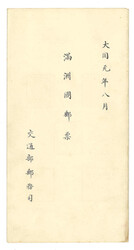 大同元年八月
満洲國郵票
交通部郵務司